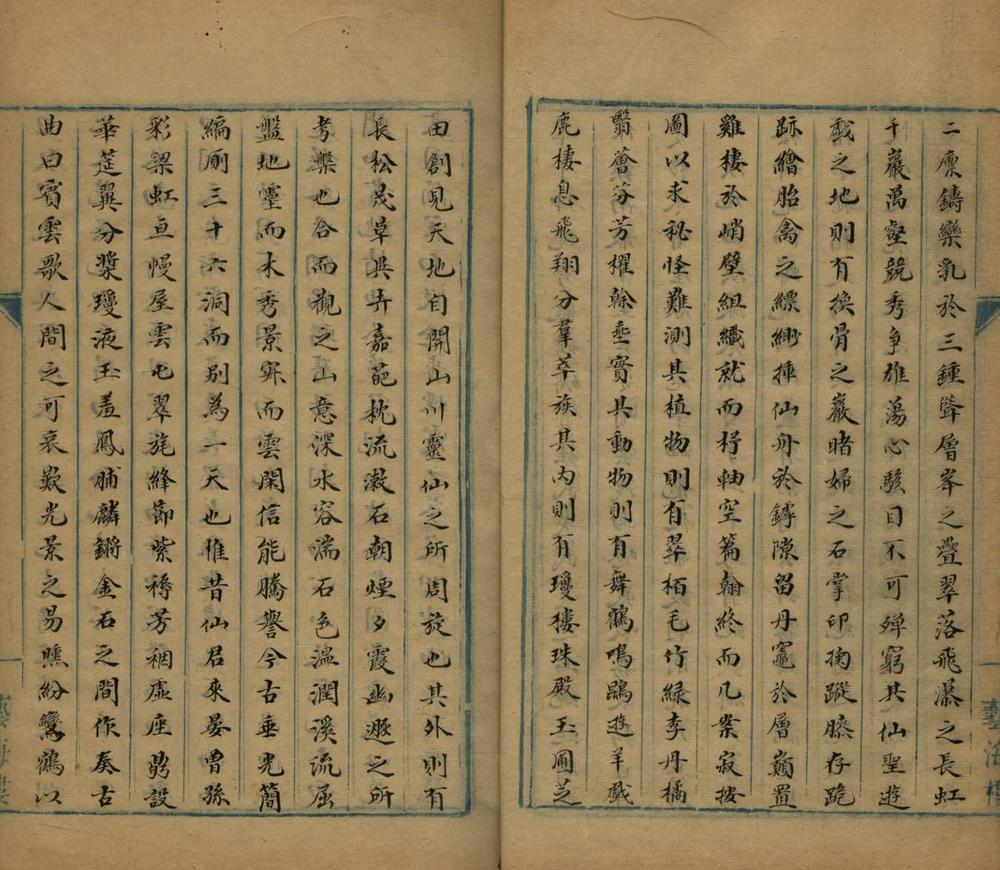 二廪鑄欒乳於三鍾聳層峯之疊翠落飛瀑之長虹
千巖萬壑競秀争雄蕩心駭目不可殫窮其仙聖遊
戯之地則有換骨之巖睹婦之石掌印掬蹤膝存跪
跡繪胎禽之縹緲揷仙舟於罅隙留丹竈於層巔置
雞棲於峭壁組織就而杼軸空篇翰終而几案寂按
圖以求秘怪難測其植物則有翠栢毛竹緑李丹橘
翳薈芬芳櫂榦垂實其動物則有舞鶴鳴鵾遊羊戯
鹿棲息飛翔分羣萃族其内則有瓊樓珠殿玉圃芝
田創見天地自開山川靈仙之所周旋也其外則有
長松茂草異卉嘉葩枕流漱石朝煙夕霞幽遯之所
考槃也合而觀之山意深水容湍石色温潤溪流屈
盤地靈而木秀景寂而雲閑信能騰譽今古垂光簡
編厠三十六洞而别為一天也惟昔仙君來晏曽孫
彩梁虹亘幔屋雲屯翠旄絳節紫褥芳裀虚座鼎設
華莚翼分漿瓊液玉羞鳳脯麟鏘金石之間作奏古
曲曰賓雲歌人間之可哀歎光景之易曛紛鸞鶴以
藝海樓